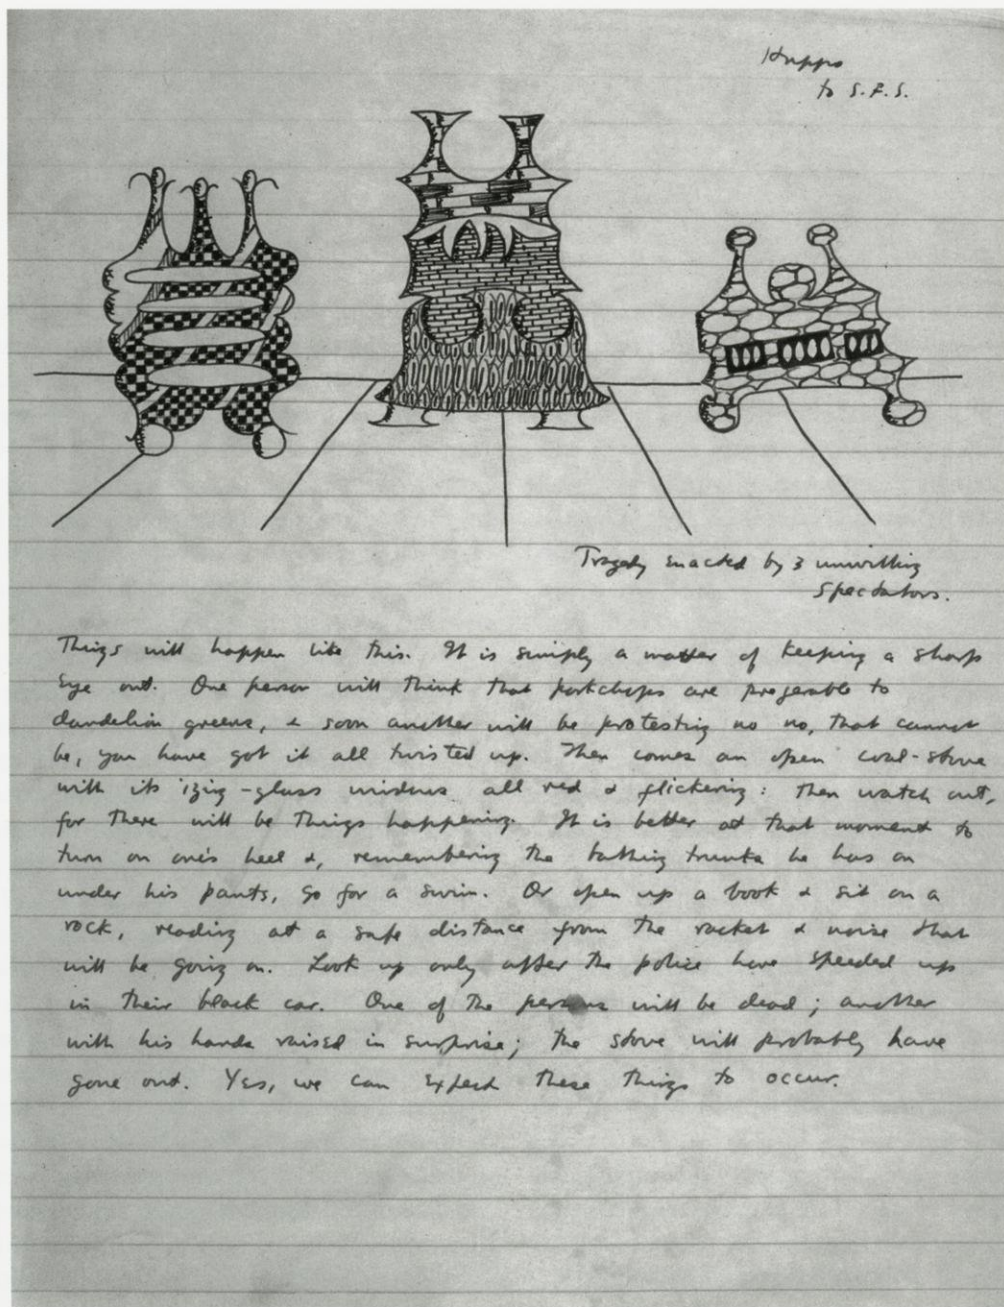 to S.F.S.
Tragedy enacted by 3 unwilling
spectators.
Things will happen like this. It is simply a matter of keeping a sharp
eye out. One person will think that porkchops are preferable to
dandelion greens, & soon another will be protesting no no, that cannot
be, you have got it all twisted up. Then comes an open coal-stove
with its izing-glass windows all red & flickering: then watch out,
for there will be things happening. It is better at that moment to
turn on one's heel &, remembering the bathing trunks he has on
under his pants, go for a swim. Or open up a book & sit on a
rock, reading at a safe distance from the racket & noise that
will be going on. Look up only after the police have speeded up
in their black car. One of the persons will be dead; another
with his hands raised in surprise; the stove will probably have
gone out. Yes, we can expect these things to occur.